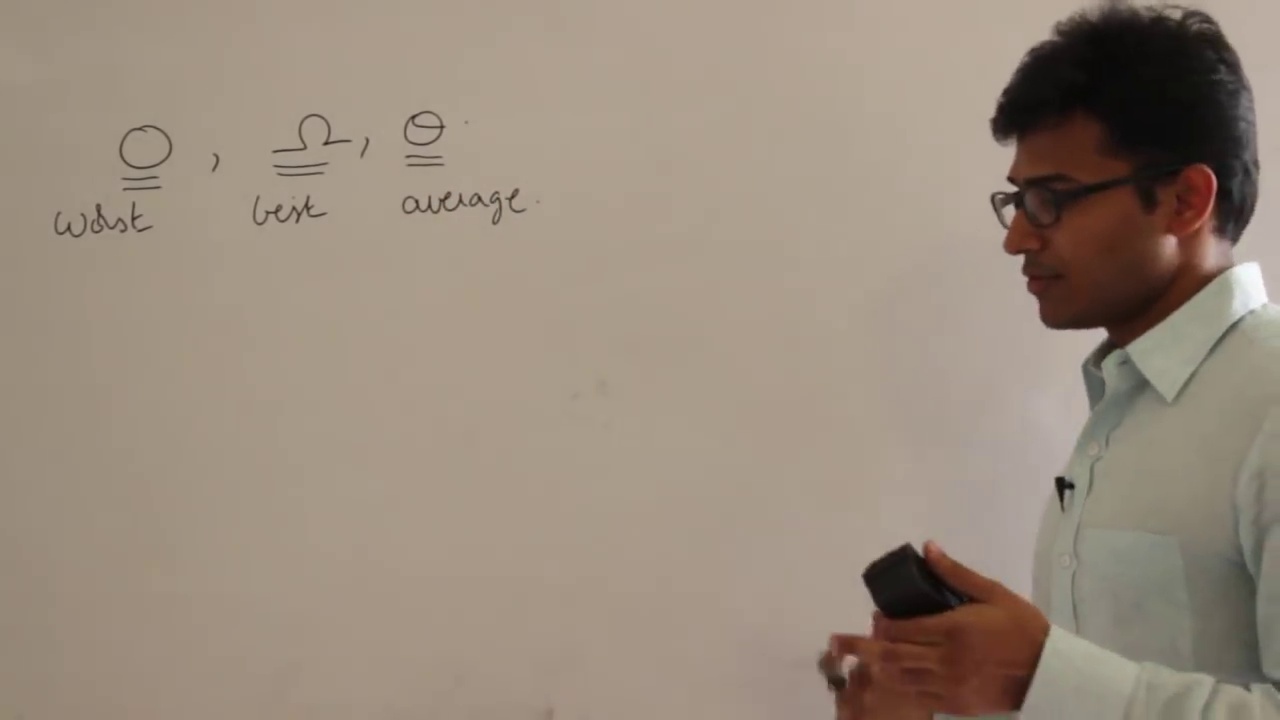 O , Ω , Θ
worst best average.